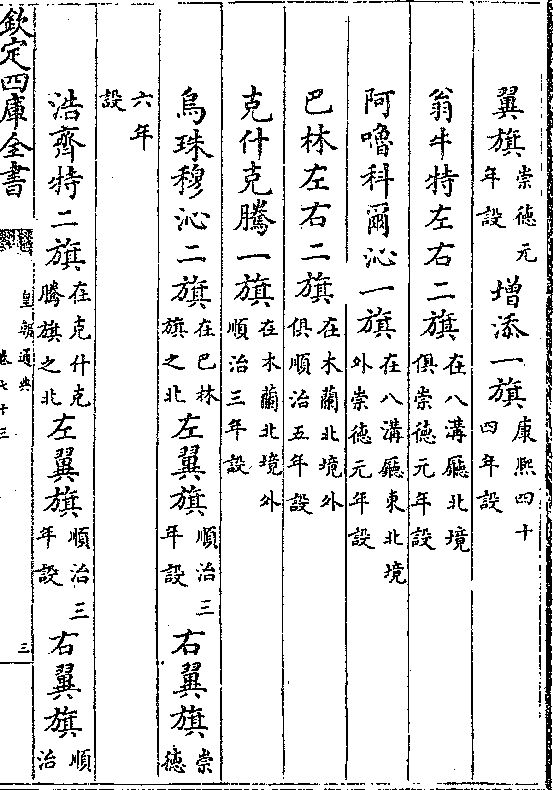 翼旗崇德元年設增添一旗康熙四十四年設
翁牛特左右二旗在八溝廳北境俱崇德元年設
阿嚕科爾沁一旗在八溝廳東北境外崇德元年設
巴林左右二旗在木蘭北境外俱順治五年設
克什克騰一旗在木蘭北境外順治三年設
烏珠穆沁二旗在巴林旗之北左翼旗順治三年設右翼旗崇德
六年設
浩齊特二旗在克什克騰旗之北左翼旗順治三年設右翼旗順治
欽定四庫全書
皇朝通典
卷七十三
三